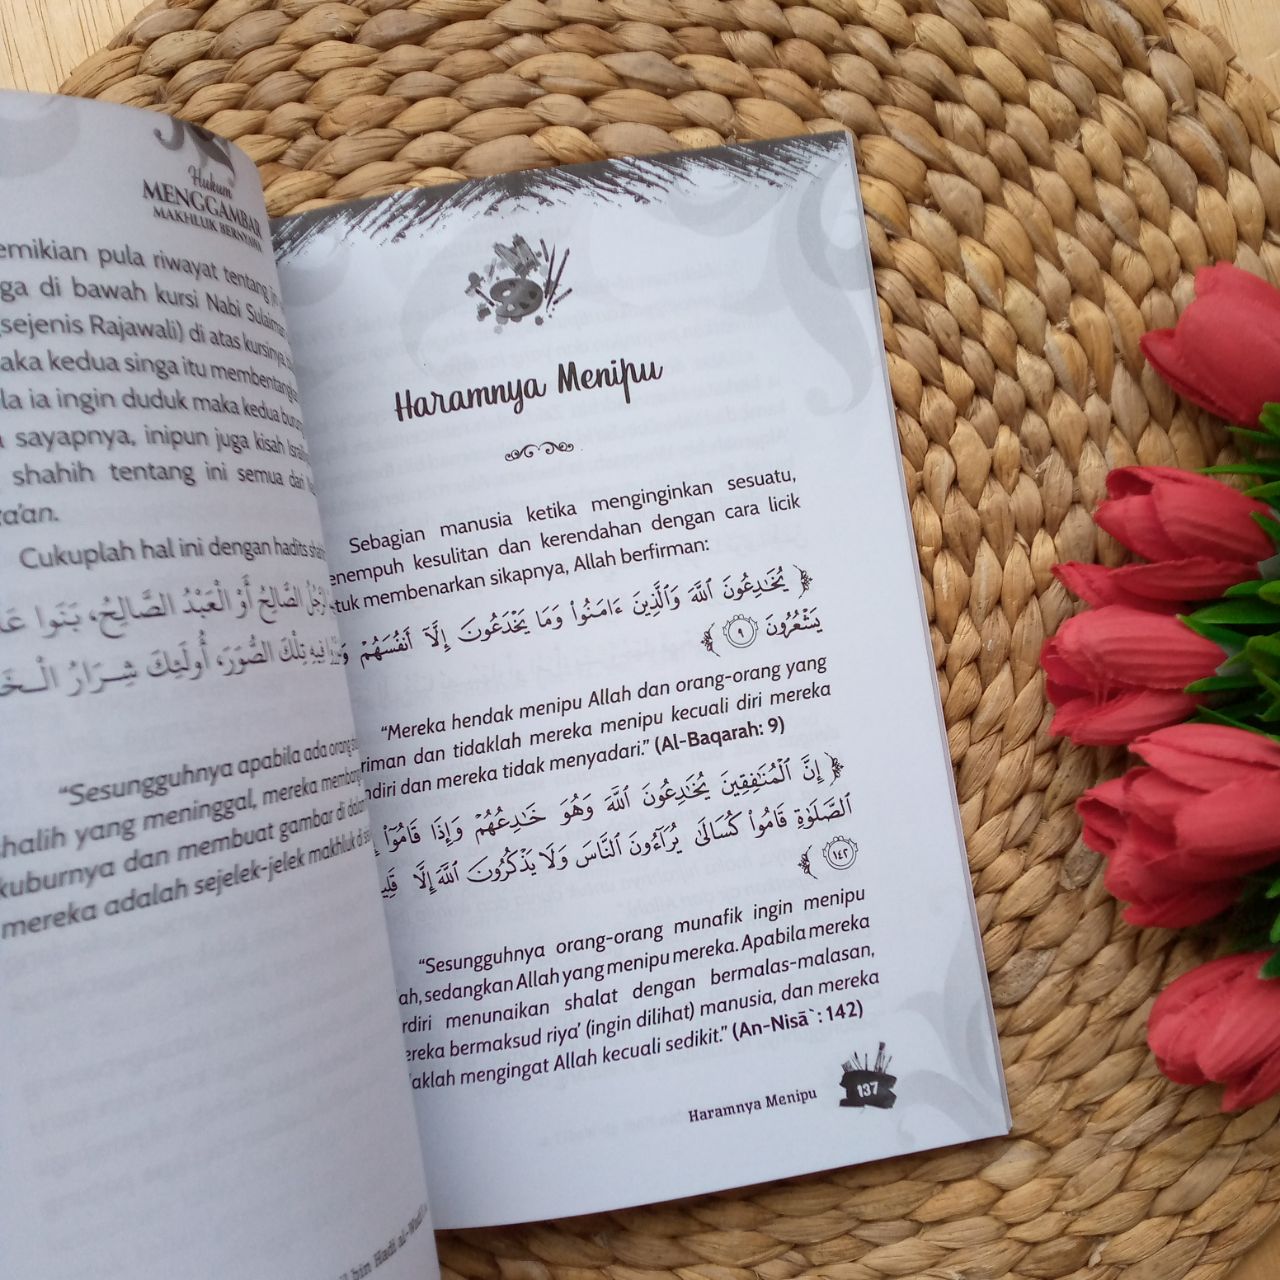 Hukum
MENGGAMBAR
MAKHLUK BERNYAWA
emikian pula riwayat tentang
ga di bawah kursi Nabi Sulaiman
(sejenis Rajawali) di atas kursinya
aka kedua singa itu membentangka
la ia ingin duduk maka kedua burung
sayapnya, inipun juga kisah Israil
shahih tentang ini semua dari
ta'an.
Cukuplah hal ini dengan hadits shah
الرَّجُلُ الصَّالِحُ أَوْ الْعَبْدُ الصَّالِحُ، بَنَوا عَلَ
فِيهِ تِلْكَ الصُّوَرَ، أُولَئِكَ شِرَارُ الْـخَـ
“Sesungguhnya apabila ada orang
shalih yang meninggal, mereka memban
kuburnya dan membuat gambar di dalam
mereka adalah sejelek-jelek makhluk di
bin Hadi al-Wadi
Haramnya Menipu
Sebagian manusia ketika menginginkan sesuatu,
enempuh kesulitan dan kerendahan dengan cara licik
tuk membenarkan sikapnya, Allah berfirman:
يُخَٰدِعُونَ ٱللَّهَ وَٱلَّذِينَ ءَامَنُوا۟ وَمَا يَخْدَعُونَ إِلَّآ أَنفُسَهُمْ
يَشْعُرُونَ ٩
“Mereka hendak menipu Allah dan orang-orang yang
riman dan tidaklah mereka menipu kecuali diri mereka
ndiri dan mereka tidak menyadari.” (Al-Baqarah: 9)
إِنَّ ٱلْمُنَٰفِقِينَ يُخَٰدِعُونَ ٱللَّهَ وَهُوَ خَٰدِعُهُمْ وَإِذَا قَامُوٓا۟
ٱلصَّلَوٰةِ قَامُوا۟ كُسَالَىٰ يُرَآءُونَ ٱلنَّاسَ وَلَا يَذْكُرُونَ ٱللَّهَ إِلَّا قَلِي
١٤٢
“Sesungguhnya orang-orang munafik ingin menipu
ah, sedangkan Allah yang menipu mereka. Apabila mereka
rdiri menunaikan shalat dengan bermalas-malasan,
ereka bermaksud riya’ (ingin dilihat) manusia, dan mereka
aklah mengingat Allah kecuali sedikit.” (An-Nisā`: 142)
Haramnya Menipu 137